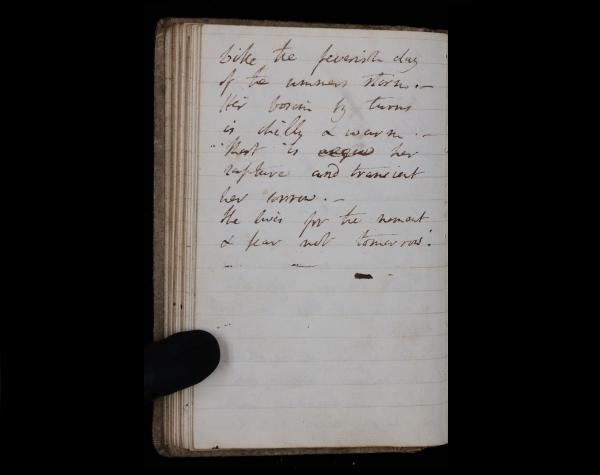 Like the feverish day
of the summers storm. —
Her bosom by turns
is chilly & warm. —
Short is her
rapture and transient
her sorrow. —
She lives for the moment
& fear not tomorrow.